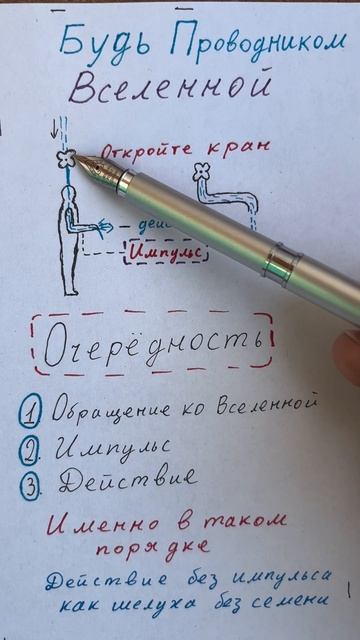 Будь Проводником
Вселенной
Откройте кран
Импульс
Очерёдность
1 Обращение ко Вселенной
2. Импульс
3. Действие
Именно в таком
порядке
Действие без импульса
как шелуха без семени